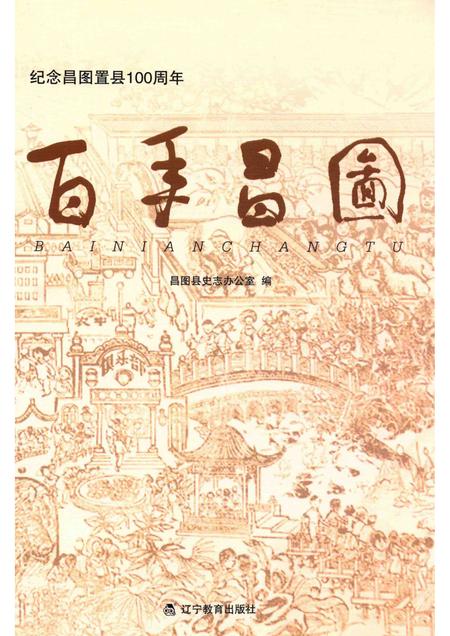 纪念昌图置县100周年
百年昌圖
BAINIANCHANGTU
昌图县史志办公室 编
俱乐部
辽宁教育出版社